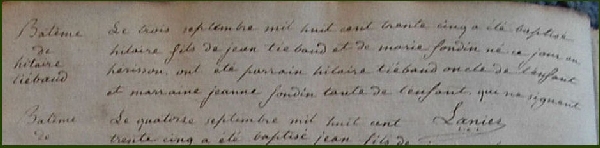 Batême
de
hilaire
tiébaud
Le trois septembre mil huit cent trente cinq a été baptisé
hilaire fils de jean tiebaud et de marie fondin né ce jour au
herisson, ont été parrain hilaire tiébaud oncle de l'enfant
et marraine jeanne fondin tante de l'enfant, qui ne signent
Lanier
Batême
de
Le quatorze septembre mil huit cent
trente cinq a été baptisé jean fils de